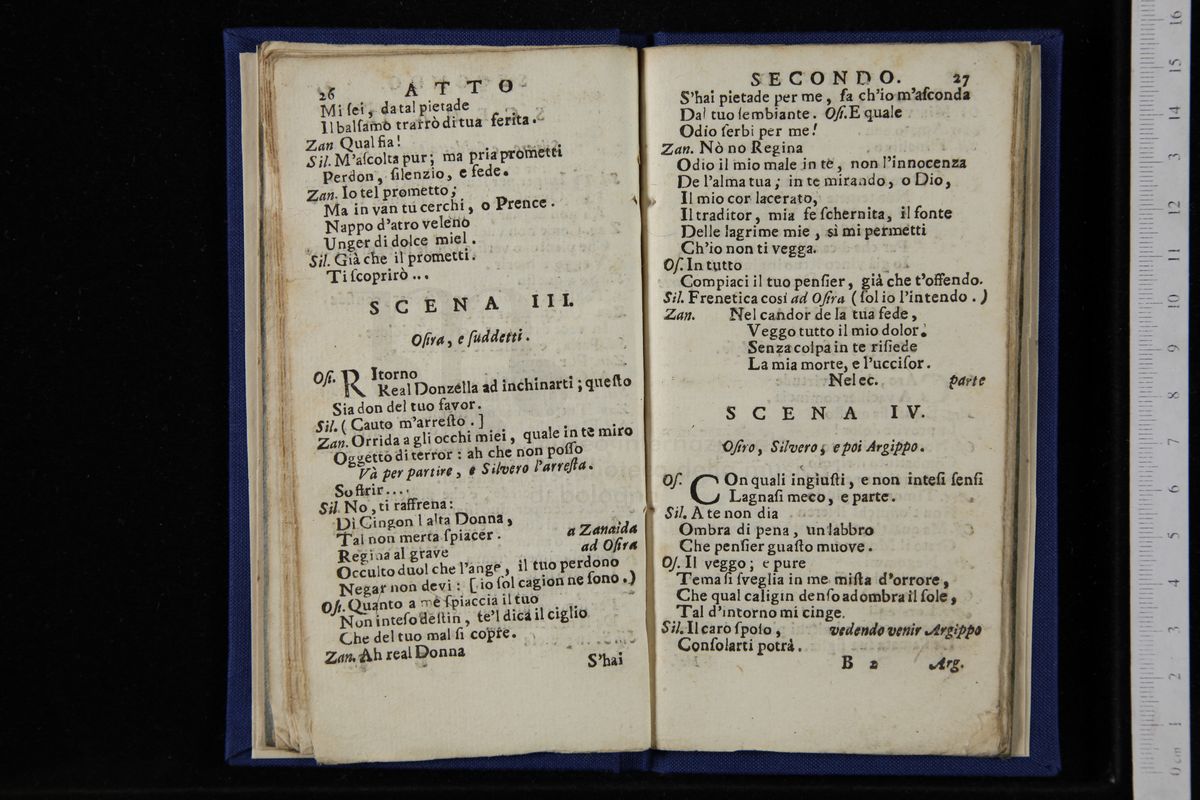 26 ATTO
Mi ſei, da tal pietade
Il balſamo trarrò di tua ferita.
Zan Qual fia!
Sil. M'aſcolta pur; ma pria prometti
Perdon, ſilenzio, e fede.
Zan. Io tel prometto;
Ma in van tu cerchi, o Prence.
Nappo d'atro veleno
Unger di dolce miel.
Sil. Già che il prometti.
Ti ſcoprirò...
SCENA III.
Oſira, e ſuddetti.
Oſi. RItorno
Real Donzella ad inchinarti; queſto
Sia don del tuo favor.
Sil. (Cauto m'arreſto.]
Zan. Orrida a gli occhi miei, quale in te miro
Oggetto di terror: ah che non poſſo
Và per partire, e Silvero l'arreſta.
Soffrir....
Sil. No, ti raffrena:
Di Cingon l alta Donna,
Tal non merta ſpiacer. a Zanaida
Regina al grave ad Oſira
Occulto duol che l'ange, il tuo perdono
Negar non devi: [io ſol cagion ne ſono.)
Oſi. Quanto a mè ſpiaccia il tuo
Non inteſo deſtin, te'l dica il ciglio
Che del tuo mal ſi copre.
Zan. Ah real Donna
S'hai
SECONDO. 27
S'hai pietade per me, fa ch'io m'aſconda
Dal tuo ſembiante. Oſi. E quale
Odio ſerbi per me!
Zan. Nò no Regina
Odio il mio male in te, non l'innocenza
De l'alma tua; in te mirando, o Dio,
Il mio cor lacerato,
Il traditor, mia fe ſchernita, il fonte
Delle lagrime mie, sì mi permetti
Ch'io non ti vegga.
Oſ. In tutto
Compiaci il tuo penſier, già che t'offendo.
Sil. Frenetica così ad Oſira (ſol io l'intendo.)
Zan. Nel candor de la tua fede,
Veggo tutto il mio dolor.
Senza colpa in te riſiede
La mia morte, e l'ucciſor.
Nel ec. parte
SCENA IV.
Oſiro, Silvero, e poi Argippo.
Oſ. COn quali ingiuſti, e non inteſi ſenſi
Lagnaſi meco, e parte.
Sil. A te non dia
Ombra di pena, un labbro
Che penſier guaſto muove.
Oſ. Il veggo; e pure
Tema ſi ſveglia in me miſta d'orrore,
Che qual caligin denſo adombra il ſole,
Tal d'intorno mi cinge.
Sil. Il caro ſpoſo, vedendo venir Argippo
Conſolarti potrà.
B 2 Arg.